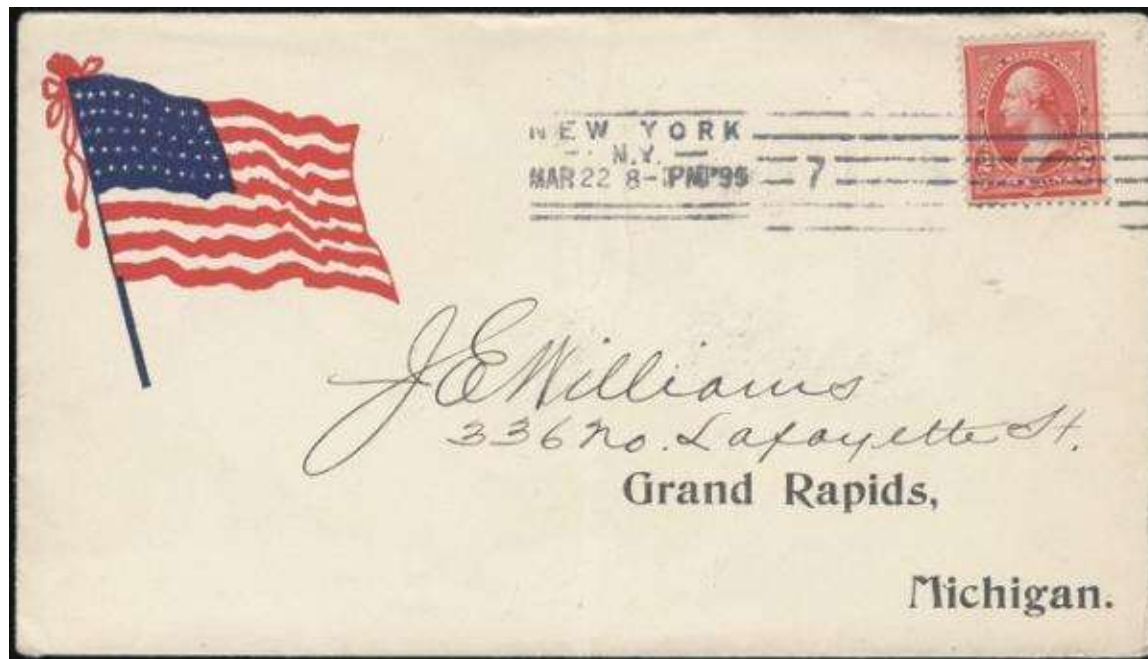 NEW YORK
N.Y.
MAR 22 8- PM '99
7
J E Williams
336 No. Lafayette St.
Grand Rapids,
Michigan.